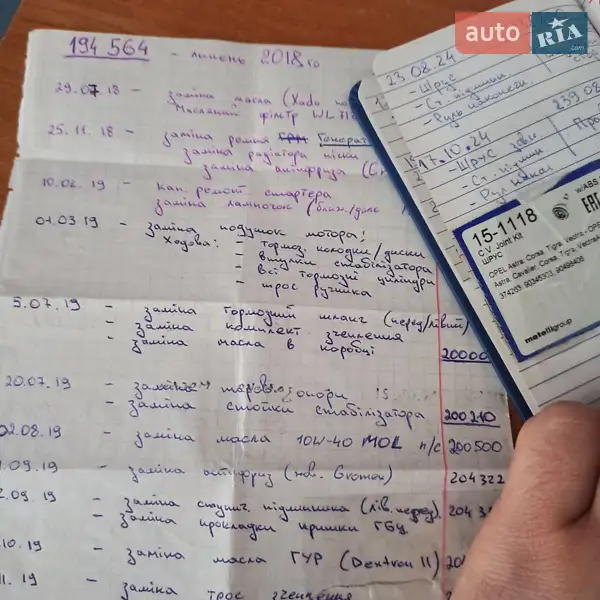 auto RIA .com
194 564 - липень 2018го
29.07.18 - заміна масла (Xado
Масляний фільтр WL 71
25.11.18 - заміна ременя Генерат
заміна радіатора пічки
заміна антифриза
10.02.19 - кап. ремонт стартера
заміна лампочок (ближ./даль
01.03.19 - заміна подушок мотора;
Ходова: - тормоз. колодки/диски
- втулки стабілізатора
- всі тормозні циліндри
- трос ручніка
5.07.19 - заміна тормозний шланг (перед/лівий)
- заміна комплект зчеплення
- заміна масла в коробці
20000
20.07.19 - заміна опори
- заміна стойки стабілізатора 200 210
02.08.19 - заміна масла 10W-40 MOL п/с 200 500
.09.19 - заміна антифриз 204 322
2.09.19 - заміна ступич. підшипника (лів. перед) 204 3
- заміна прокладки кришки ГБЦ
.10.19 - заміна масла ГУР (Dextron II) 20
1.19 - заміна трос зчеплення
23.08.24
- Шрус
- Ст. підшип.
- Руль наконечн.
239 08
17.10.24
- Шрус зовн
- Ст. підшип
- Рул након
Про
15-1118
C.V. Joint Kit
ШРУС
w/ABS
EAC
OPEL Astra, Corsa, Tigra, Vectra
Astra, Cavalier, Corsa, Tigra, Vectra
374283, 90345303, 90498406
metelligroup